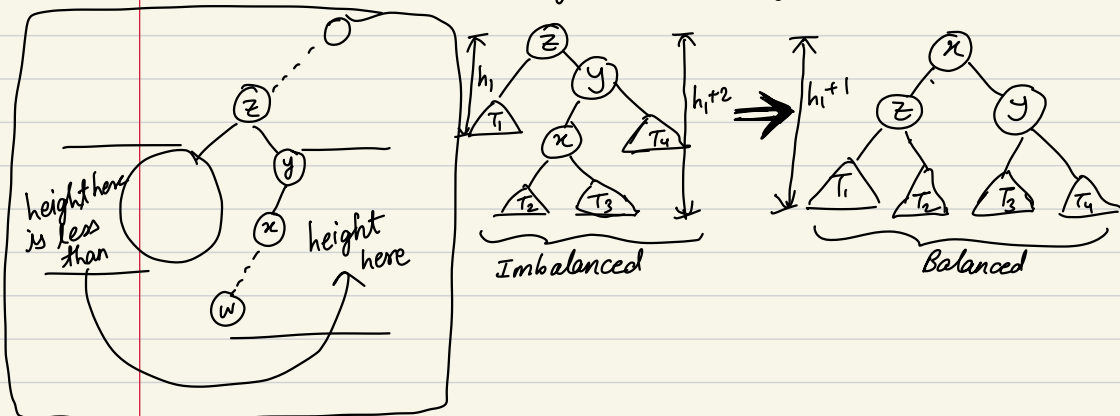 z
y
x
w
height here
is less
than
height
here
z
y
x
h₁
T₁
T₂
T₃
T₄
h₁+2
Imbalanced
h₁+1
x
z
y
T₁
T₂
T₃
T₄
Balanced